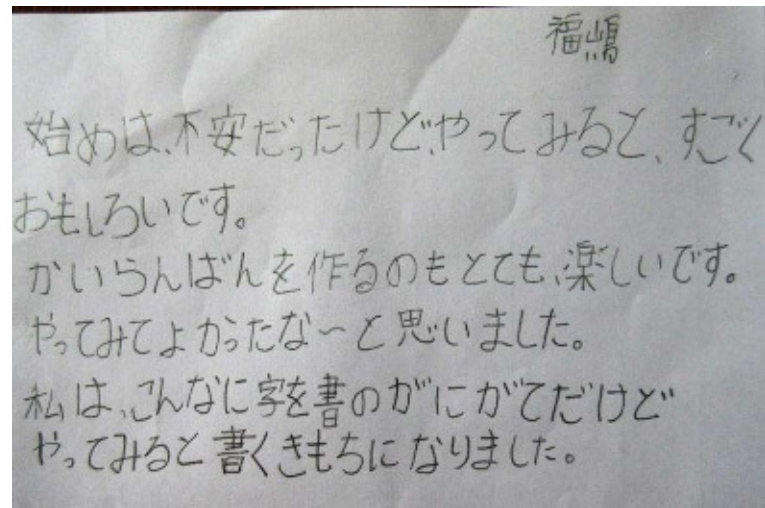 福嶋
始めは、不安だったけど、やってみると、すごく
おもしろいです。
かいらんばんを作るのもとても、楽しいです。
やってみてよかったな〜と思いました。
私は、こんなに字を書のがにがてだけど
やってみると書くきもちになりました。